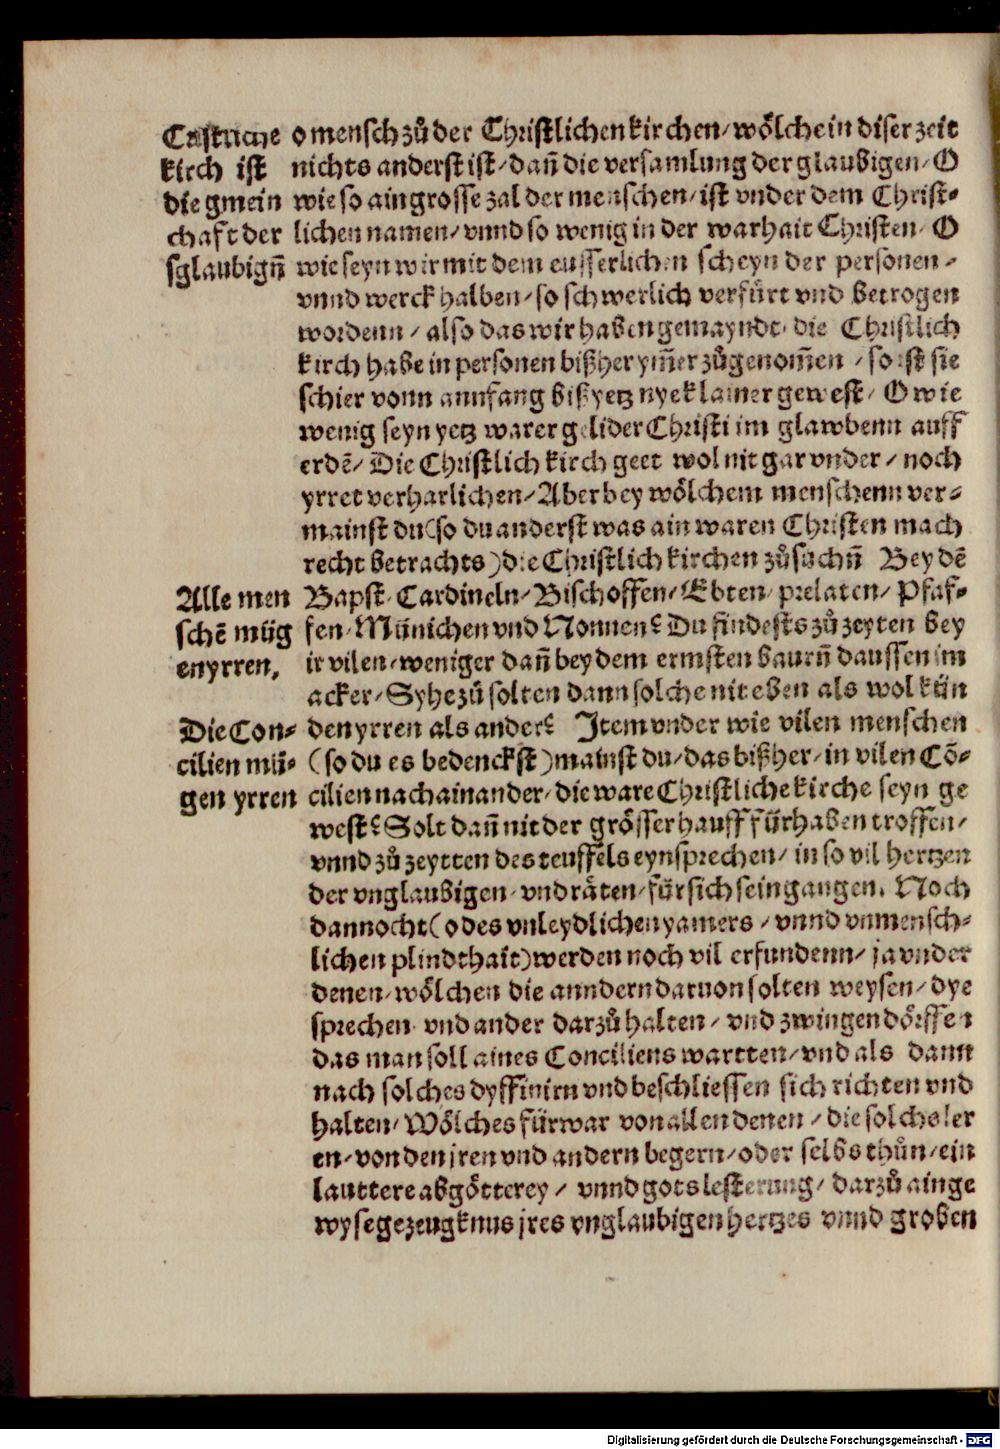 Cristliche
kirch ist
die gmein
chaft der
sglaubigñ
o mensch zů der Christlichen kirchen/ wölche in diser zeit
nichts anderst ist/ dañ die versamlung der glaubigen/ O
wie so ain grosse zal der menschen/ ist vnder dem Christ-
lichen namen/ vnnd so wenig in der warhait Christen/ O
wie seyn wir mit dem eusserlichen scheyn der personen/
vnnd werck halben/ so schwerlich verfürt vnd betrogen
wordenn/ also das wir haben gemayndt/ die Christlich
kirch habe in personen bißher ym̃er zůgenom̃en/ so ist sie
schier vonn annfang biß yetz nye klainer gewest/ O wie
wenig seyn yetz warer gelider Christi im glawbenn auff
erdẽ/ Die Christlich kirch geet wol nit gar vnder/ noch
yrret verharlichen/ Aber bey wölchem menschenn ver-
mainst du (so du anderst was ain waren Christen mach
recht betrachts) die Christlich kirchen zůsůchñ Bey dẽ
Alle men
schẽ müg
en yrren,
Bapst/ Cardineln/ Bischoffen/ Ebten/ prelaten/ Pfaf-
fen/ Münichen vnd Nonnen? Du findests zů zeyten bey
ir vilen/ weniger dañ bey dem ermsten baurñ daussen im
acker/ Syhe zů solten dann solche nit eben als wol kün
Die Con-
cilien mü-
gen yrren
den yrren als ander? Item vnder wie vilen menschen
(so du es bedenckst) mainst du/ das bißher/ in vilen Cõ-
cilien nach ainander/ die ware Christliche kirche seyn ge
west? Solt dañ nit der grösser hauff fürhaben troffen/
vnnd zů zeytten des teuffels eynsprechen/ in so vil hertzen
der vnglaubigen/ vnd räten/ für sich sein gangen. Noch
dannocht (o des vnleydlichen yamers/ vnnd vnmensch-
lichen plindthait) werden noch vil erfundenn/ ja vnder
denen/ wölchen die anndern daruon solten weysen/ dye
sprechen/ vnd ander darzů halten/ vnd zwingen dörffen
das man soll aines Conciliens wartten/ vnd als dann
nach solches dyffinirn vnd beschliessen sich richten vnd
halten/ Wölches fürwar von allen denen/ die solchs ler
en/ von den jren vnd andern begern/ oder selbs thůn/ ein
lauttere abgötterey/ vnnd gotslesterung/ darzů ainge
wyse gezeugknus jres vnglaubigen hertzes vnnd groben
Digitalisierung gefördert durch die Deutsche Forschungsgemeinschaft - DFG